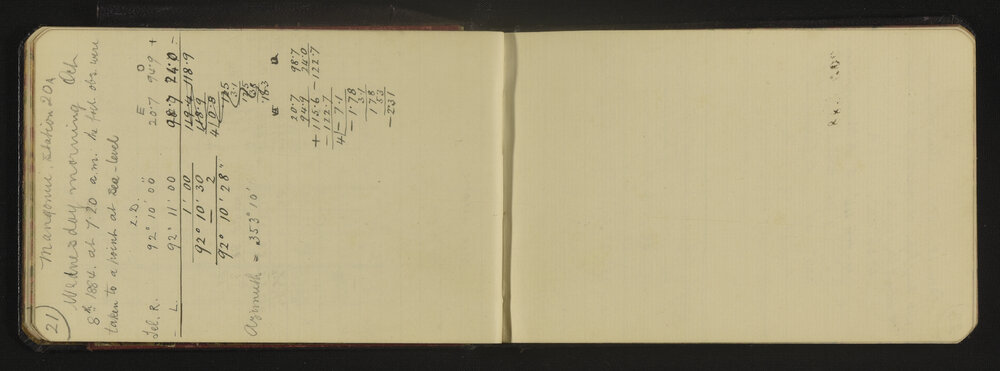 21
Mangonui. Station 20A
Wednesday morning Oct.
8th 1884. at 7.20 a.m. the foll. obs. were
taken to a point at sea-level
Z.D. E O
Tel. R. 92° 10' 00" 20.7 94.9 +
- L. 92° 11' 00 98.7 24.0 -
1' 00 119.4 118.9
92° 10' 30 118.9
- 2 4 0.5
92° 10' 28"
Azimuth = 353° 10'
20.7 98.7
94.9 24.0
+ 115.6 - 122.7
- 122.7
4 - 7.1
- 1.78
3.1
178
53
- 2.31